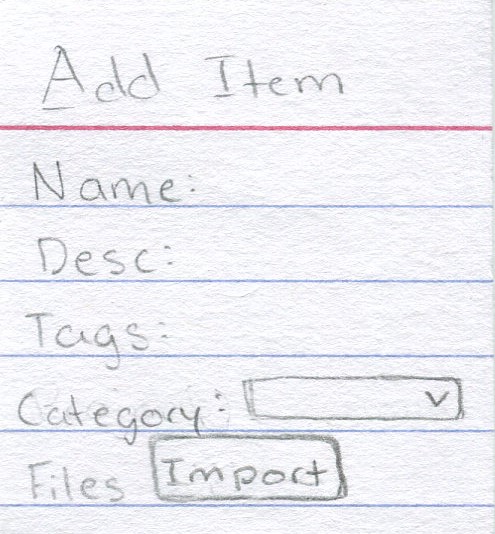 Add Item
Name:
Desc:
Tags:
Category:
Files Import